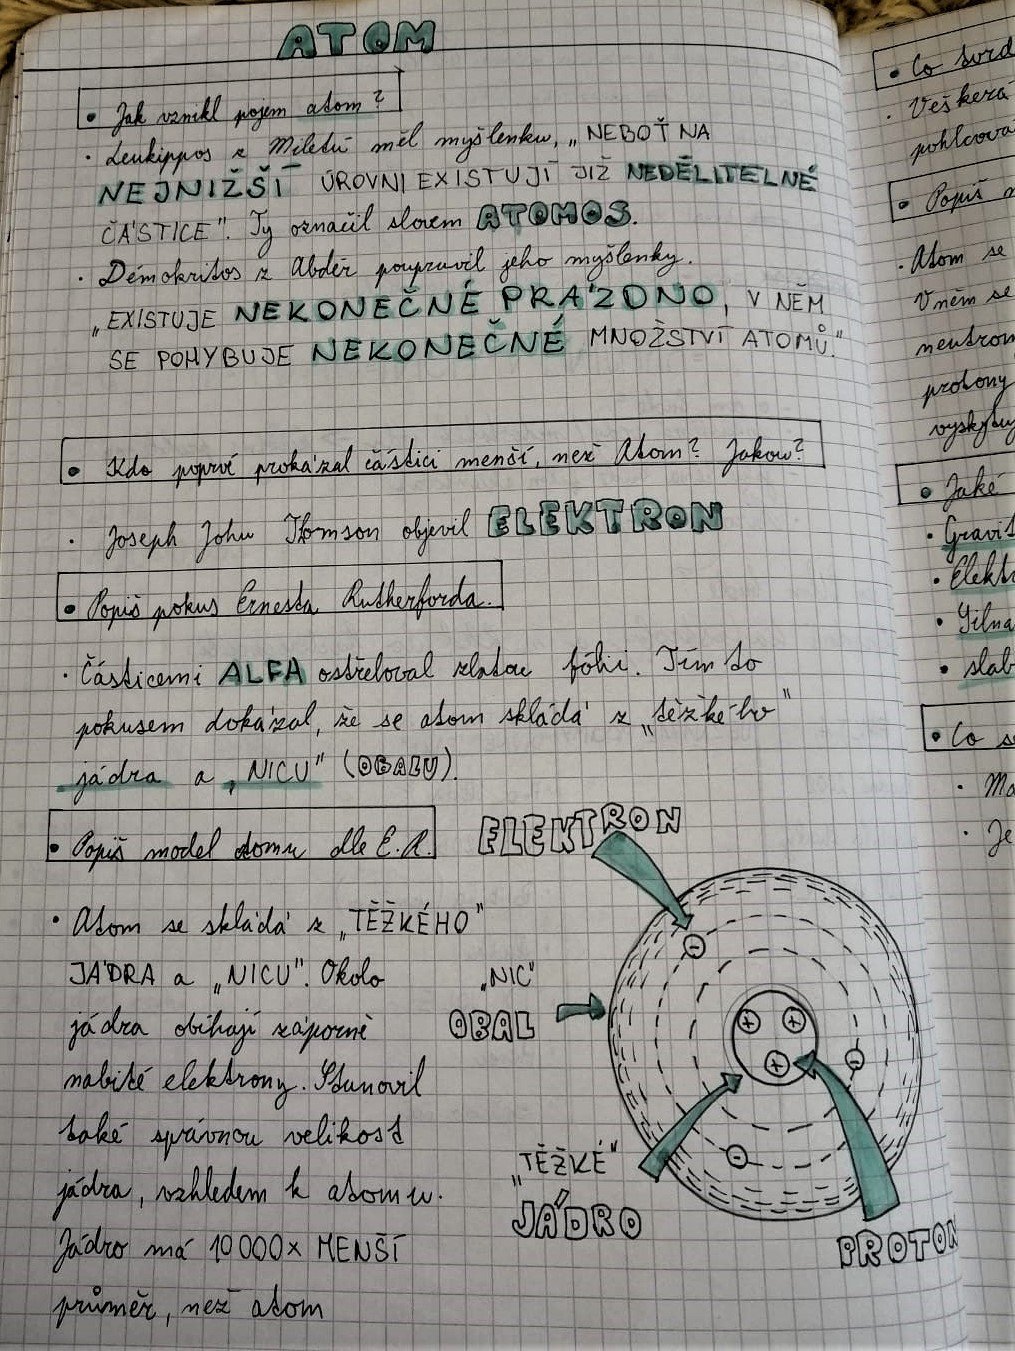 ATOM
• Jak vznikl pojem atom?
· Leukippos z Milétu měl myšlenku, „NEBOŤ NA
NEJNIŽŠÍ ÚROVNI EXISTUJÍ JIŽ NEDĚLITELNÉ
ČÁSTICE". Ty označil slovem ATOMOS.
· Démokritos z Abdér poupravil jeho myšlenky.
„EXISTUJE NEKONEČNÉ PRÁZDNO, V NĚM
SE POHYBUJE NEKONEČNÉ MNOŽSTVÍ ATOMŮ."
• Kdo poprvé prokázal částici menší, než Atom? Jakou?
· Joseph John Thomson objevil ELEKTRON
• Popiš pokus Ernesta Rutherforda.
· Částicemi ALFA ostřeloval zlatou fólii. Tím to
pokusem dokázal, že se atom skládá z „těžkého"
jádra a „NICU" (OBALU).
• Popiš model atomu dle E. R.
· Atom se skládá z „TĚŽKÉHO"
JÁDRA a „NICU". Okolo
jádra obíhají záporně
nabité elektrony. Stanovil
také správnou velikost
jádra, vzhledem k atomu.
Jádro má 10 000x MENŠÍ
průměr, než atom
ELEKTRON
„NIC"
OBAL
„TĚŽKÉ"
JÁDRO
PROTON
- - -
+ + +
• Co tvrd
· Veškerá
pohlcova
• Popiš m
· Atom se
V něm se
neutron
protony
vyskytu
• Jaké
· Gravit
• Elekt
• Silná
• slab
• Co s
· Ma
· Je